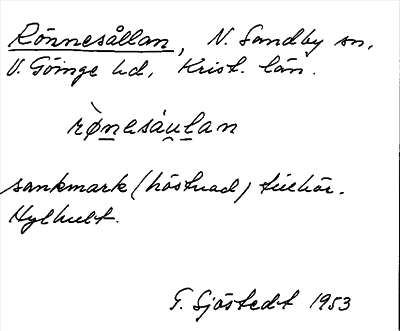 Rönnesållan, N. Sandby sn,
V. Göinge hd, Krist. län.
rø̀nesáu̯lan
sankmark (höstvad) tillhör.
Hylhult.
G. Sjöstedt 1953